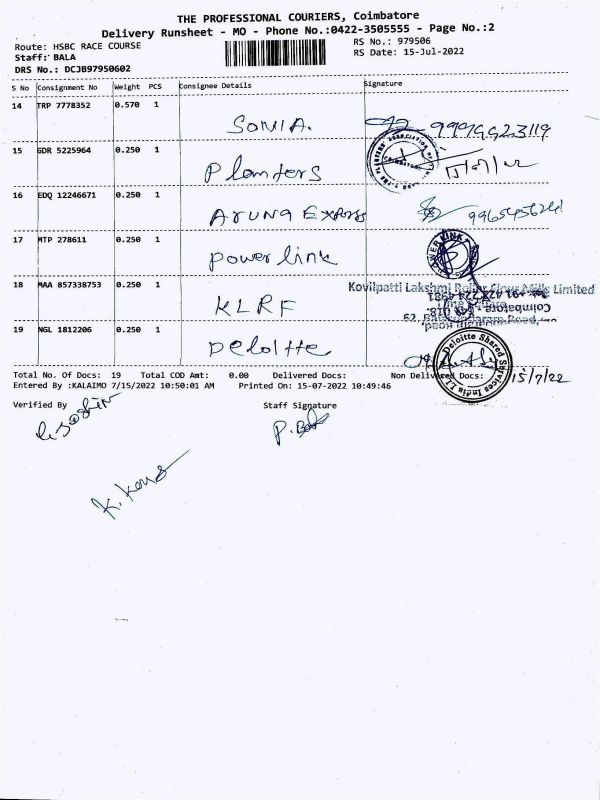 THE PROFESSIONAL COURIERS, Coimbatore
Delivery Runsheet - MO - Phone No.:0422-3505555 - Page No.:2
Route: HSBC RACE COURSE
RS No.: 979506
Staff: BALA
RS Date: 15-Jul-2022
DRS No.: DCJB97950602
S No Consignment No Weight PCS Consignee Details Signature
14 TRP 7778352 0.570 1
SONIA.
15 GDR 5225964 0.250 1
Planters
16 EDQ 12246671 0.250 1
Aruna Express
17 MTP 278611 0.250 1
power link
18 MAA 857338753 0.250 1
KLRF
Kovilpatti Lakshmi Roller Flour Mills Limited
19 NGL 1812206 0.250 1
Deloitte
Deloitte Shared Services India
15/7/22
Total No. Of Docs: 19 Total COD Amt: 0.00 Delivered Docs: Non Delivered Docs:
Entered By :KALAIMO 7/15/2022 10:50:01 AM Printed On: 15-07-2022 10:49:46
Verified By Staff Signature